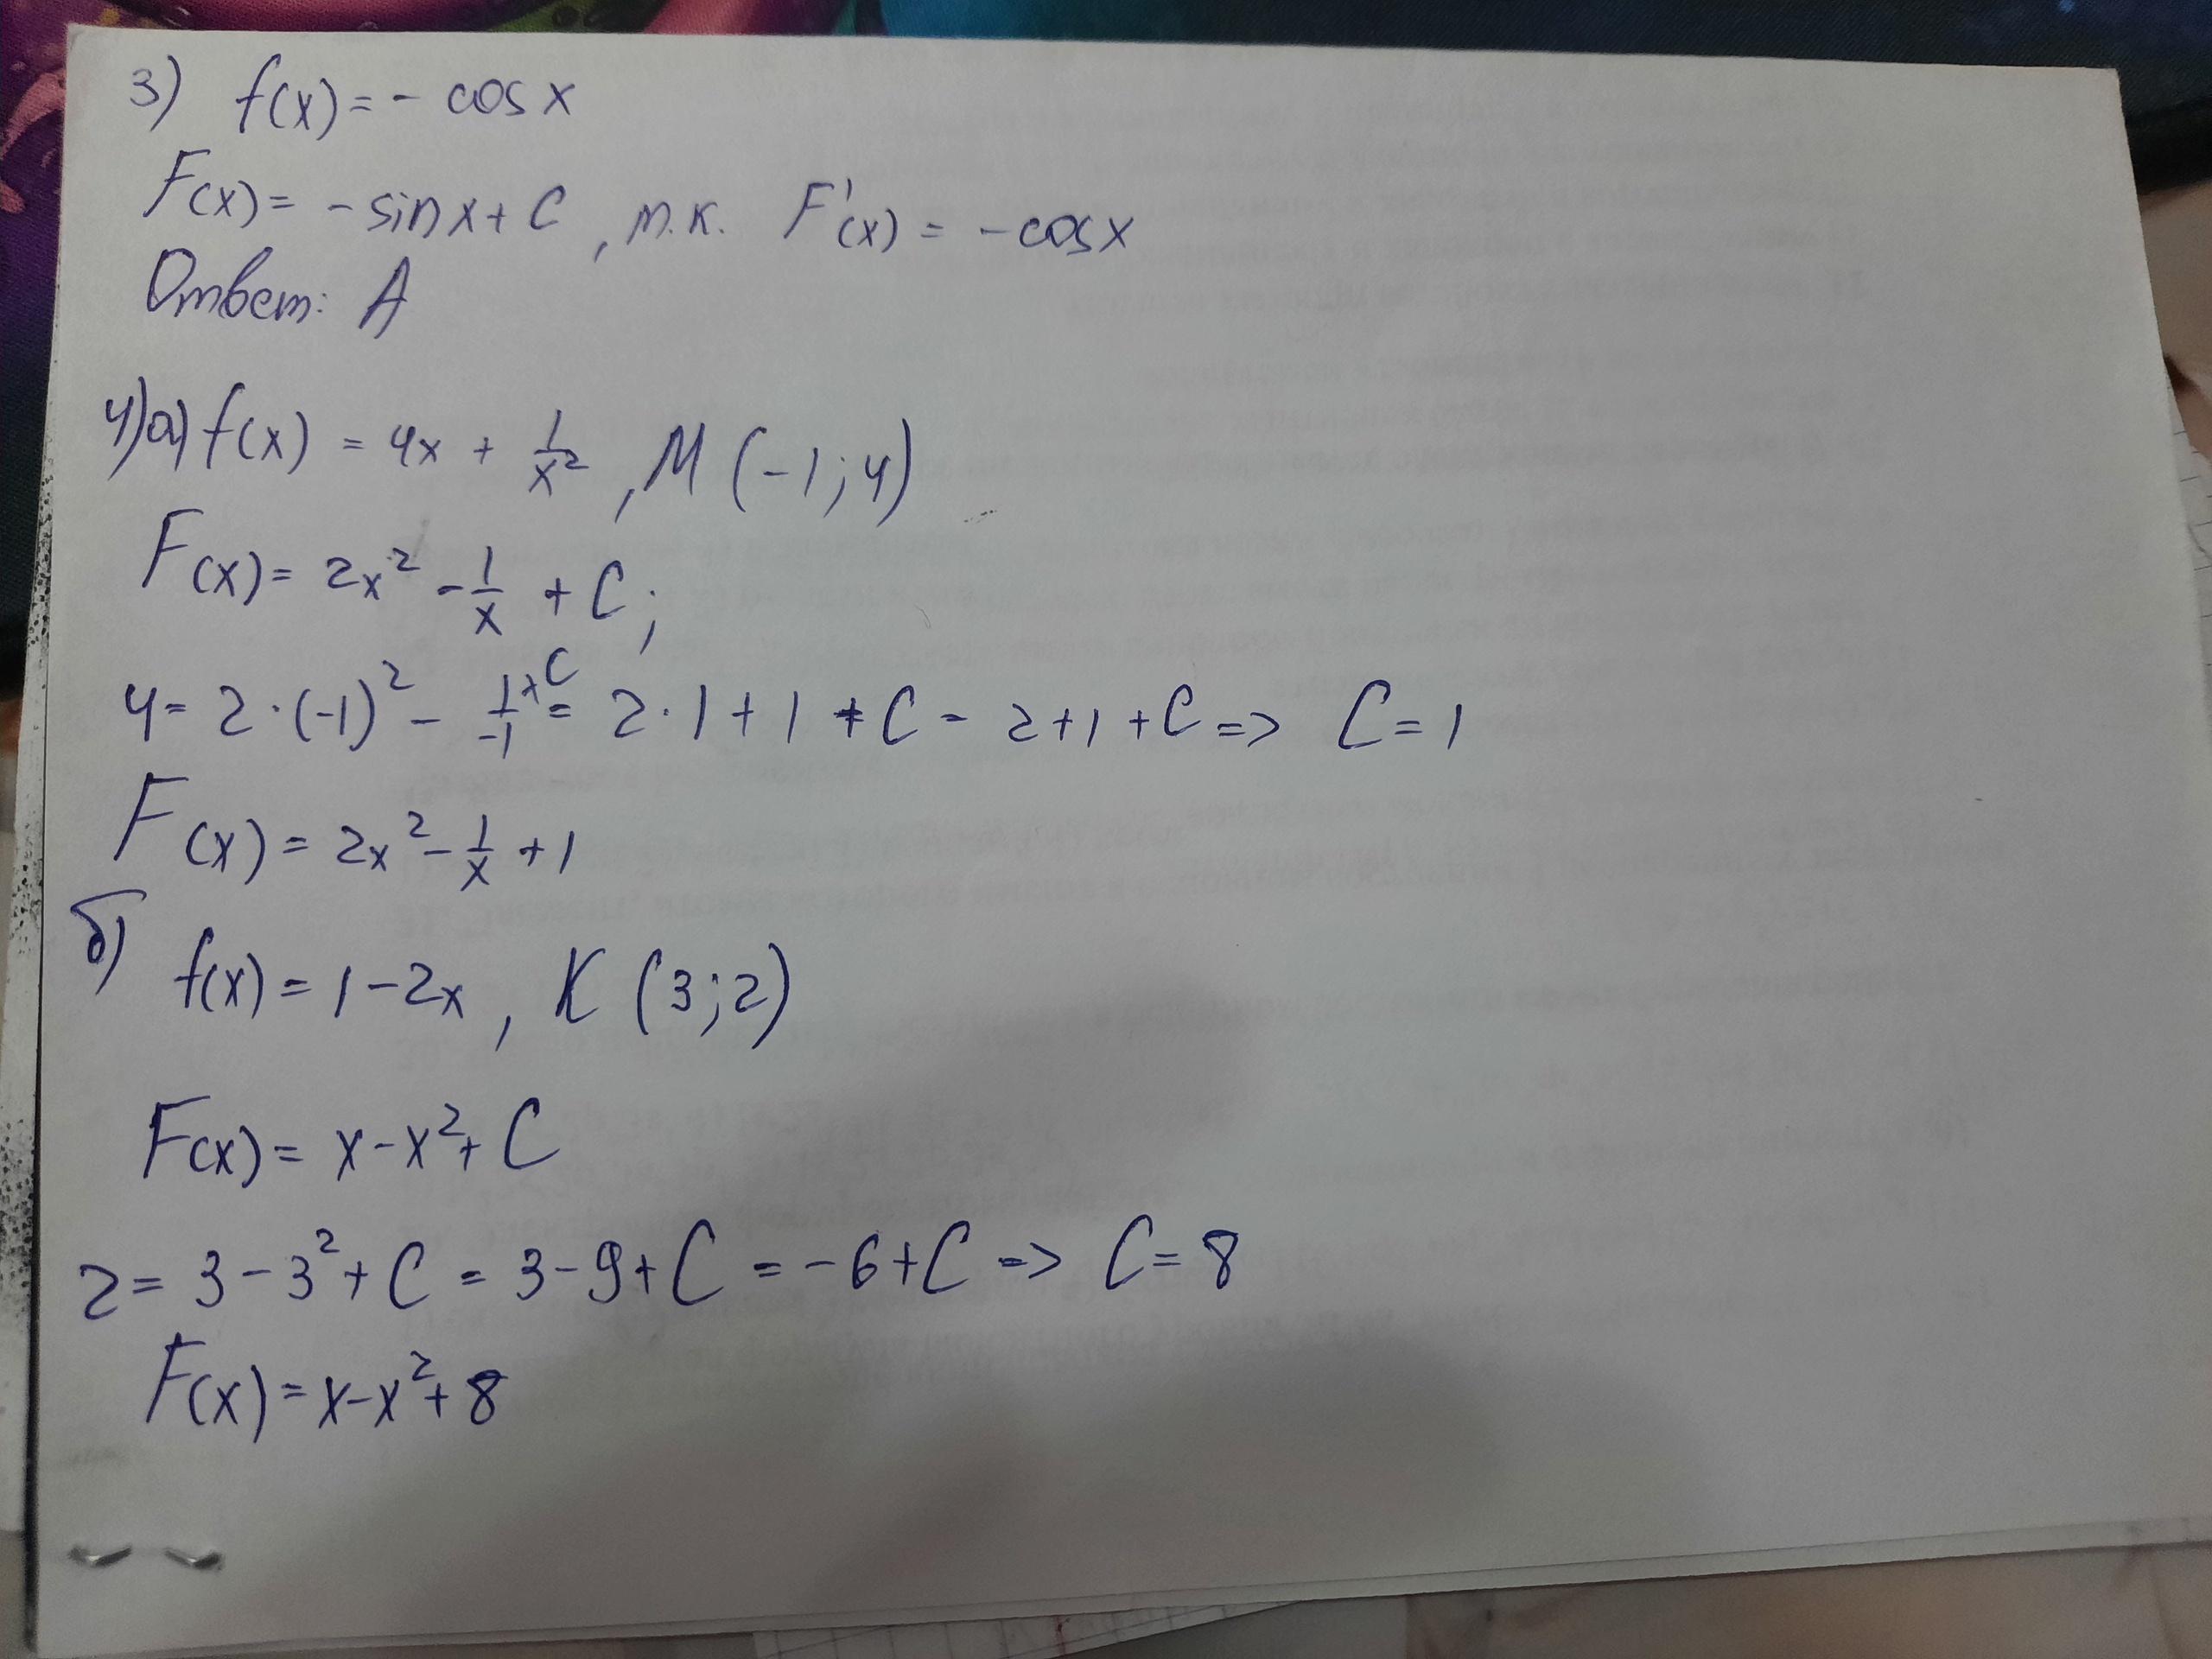 3) f(x) = - cos x
F(x) = - sin x + C , т.к. F'(x) = - cos x
Ответ: А
4) а) f(x) = 4x + 1/x² , M (-1; 4)
F(x) = 2x² - 1/x + C;
4 = 2 · (-1)² - 1/-1 + C = 2 · 1 + 1 + C = 2 + 1 + C => C = 1
F(x) = 2x² - 1/x + 1
б) f(x) = 1 - 2x , K (3; 2)
F(x) = x - x² + C
2 = 3 - 3² + C = 3 - 9 + C = - 6 + C => C = 8
F(x) = x - x² + 8